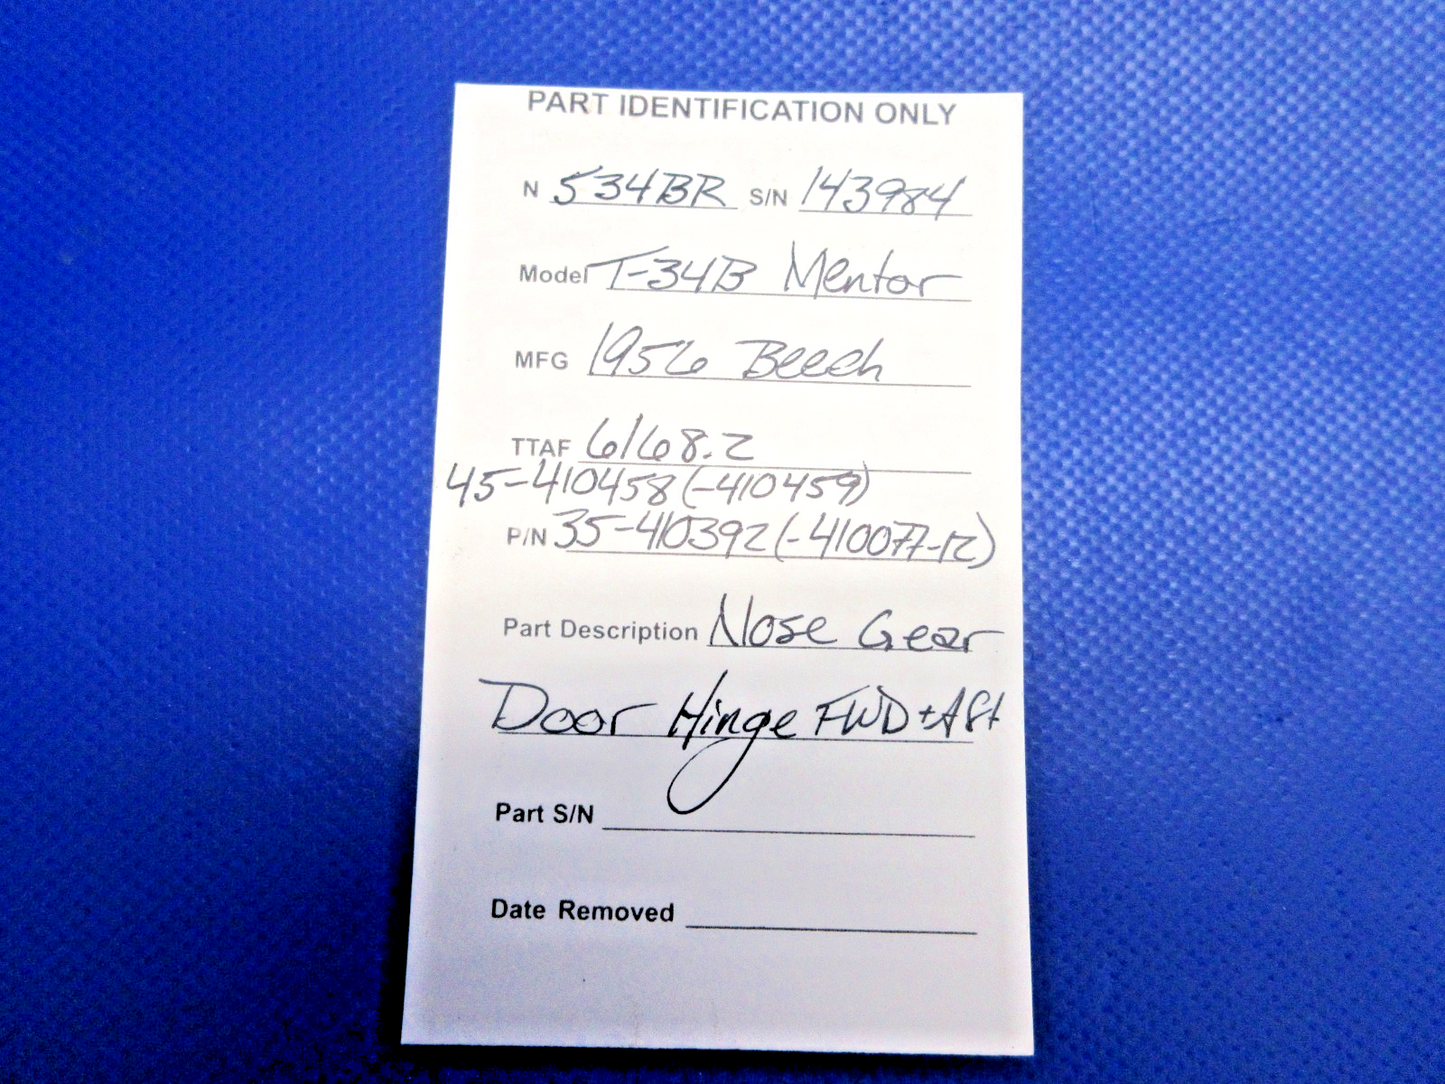 PART IDENTIFICATION ONLY
N 534BR S/N 143984
Model T-34B Mentor
MFG 1956 Beech
TTAF 6168.2
45-410458 (-410459)
P/N 35-410392 (-410077-12)
Part Description Nose Gear
Door Hinge FWD + Aft
Part S/N
Date Removed